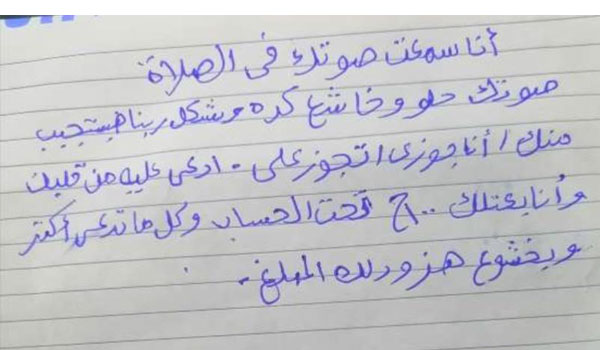 أنا سمعت صوتك في الصلاة
صوتك حلو وخاشع كده وشكل ربنا هيستجيب
منك / أنا جوزي اتجوز علي - ادعي عليه من قلبك
وأنا بعتلك ٢٠٠ج تحت الحساب وكل ما تدعي أكتر
وبخشوع هزودلك المبلغ -